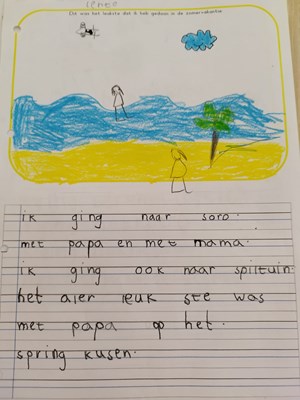 Dit was het leukste dat ik heb gedaan in de zomervakantie
ik ging naar soro.
met papa en met mama.
ik ging ook naar spiltuin
het aler leuk ste was
met papa op het.
spring kusen.